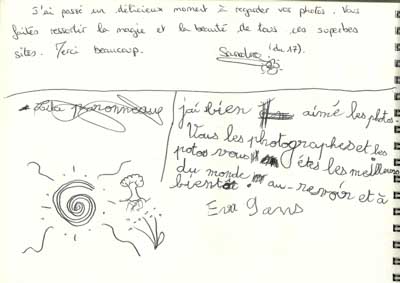 J'ai passé un délicieux moment à regarder vos photos. Vous
faîtes ressortir la magie et la beauté de tous ces superbes
sites. Merci beaucoup.
Sandra (du 17).
j'ai bien aimé les photos.
Vous les photographes et les
potos vous êtes les meilleurs
du monde au-revoir et à
bientôt.
Eva 9 ans